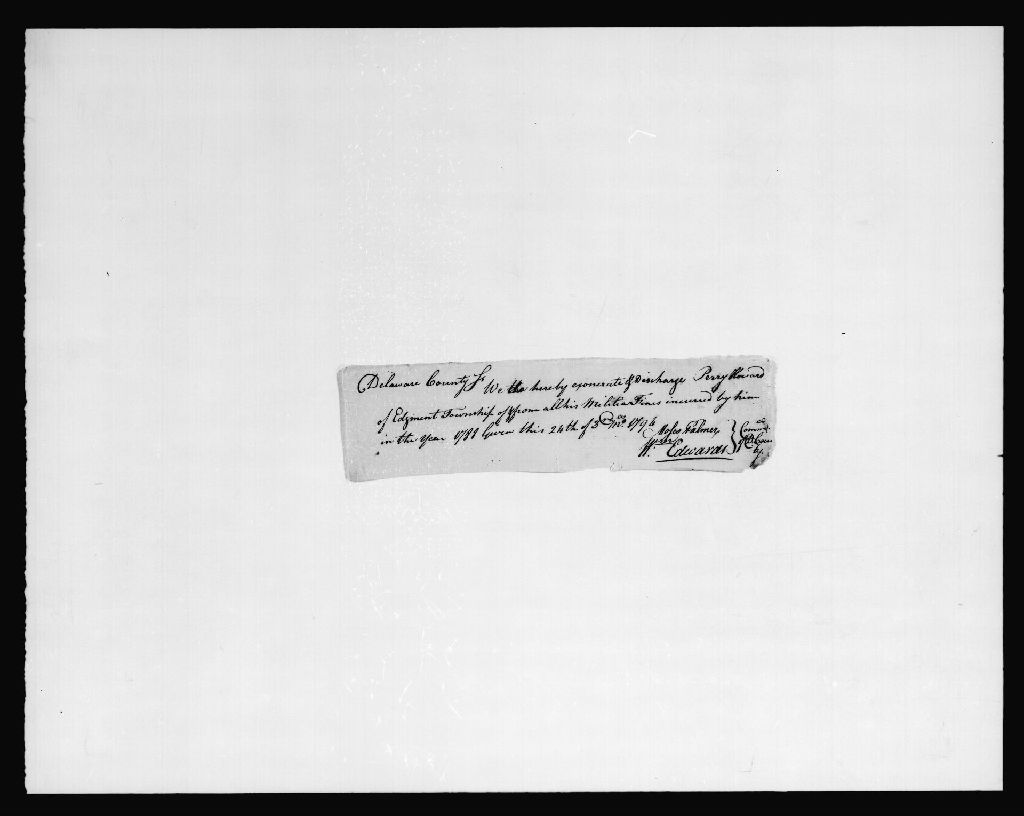 Delaware County Ss We do hereby exonerate & Discharge Perry Howard
of Edgment Township of & from all his Militia Fines incurred by him
in the Year 1788 Given this 24th of 3d Mo. 1794
Moses Palmer
Edwards
Comm